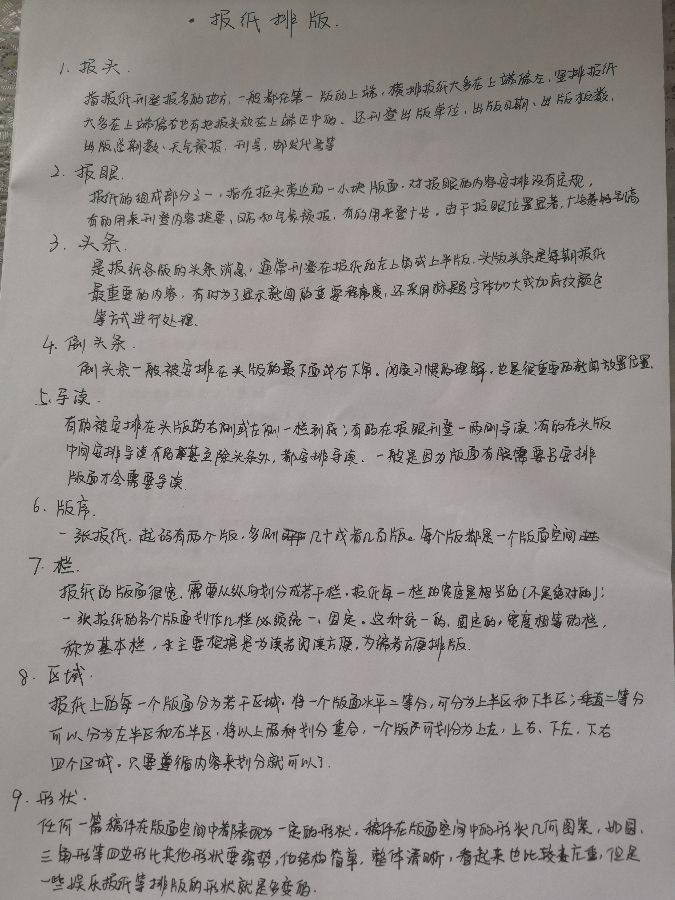 ·报纸排版.
1. 报头.
指报纸刊登报名的地方,一般都在第一版的上端,横排报纸大多在上端偏左,竖排报纸
大多在上端偏右也有把报头放在上端正中的。还刊登出版单位、出版日期、出版板数、
出版总期数、天气预报、刊号、邮发代号等
2. 报眼.
报纸的组成部分之一,指在报头旁边的一小块版面.对报眼的内容安排没有定规,
有的用来刊登内容提要、日历和气象预报,有的用来登广告。由于报眼位置显著,
3. 头条.
是报纸各版的头条消息,通常刊登在报纸的左上角或上半版.头版头条是每期报纸
最重要的内容,有时为了显示新闻的重要程度,还采用标题字体加大或加底纹颜色
等方式进行处理.
4. 倒头条.
倒头条一般被安排在头版的最下面或右下角。阅读习惯的理解,也是很重要的新闻放置位置.
5. 导读.
有的被安排在头版的右侧或左侧一栏到底;有的在报眼刊登一两则导读;有的在头版
中间安排导读有的甚至除头条外,都安排导读.一般是因为版面有限需要另安排
版面才会需要导读.
6. 版序.
一张报纸.起码有两个版,多则几十或者几百版。每个版都是一个版面空间
7. 栏.
报纸的版面很宽.需要从纵向划分成若干栏.报纸每一栏的宽度是相当的(不是绝对的);
一张报纸的各个版面划作几栏必须统一、固定。这种统一的、固定的,宽度相等的栏,
称为基本栏,主要根据是为读者阅读方便,为编者方便排版.
8. 区域.
报纸上的每一个版面分为若干区域.将一个版面水平二等分,可分为上半区和下半区;垂直二等分
可以分为左半区和右半区,将以上两种划分重合,一个版可划分为上左,上右、下左,下右
四个区域。只要遵循内容来划分就可以了.
9. 形状.
任何一篇稿件在版面空间中都表现为一定的形状,稿件在版面空间中的形状几何图案,如圆,
三角形等四边形比其他形状要强势,他结构简单,整体清晰,看起来也比较庄重,但是
一些娱乐报纸等排版的形状就是多变的.